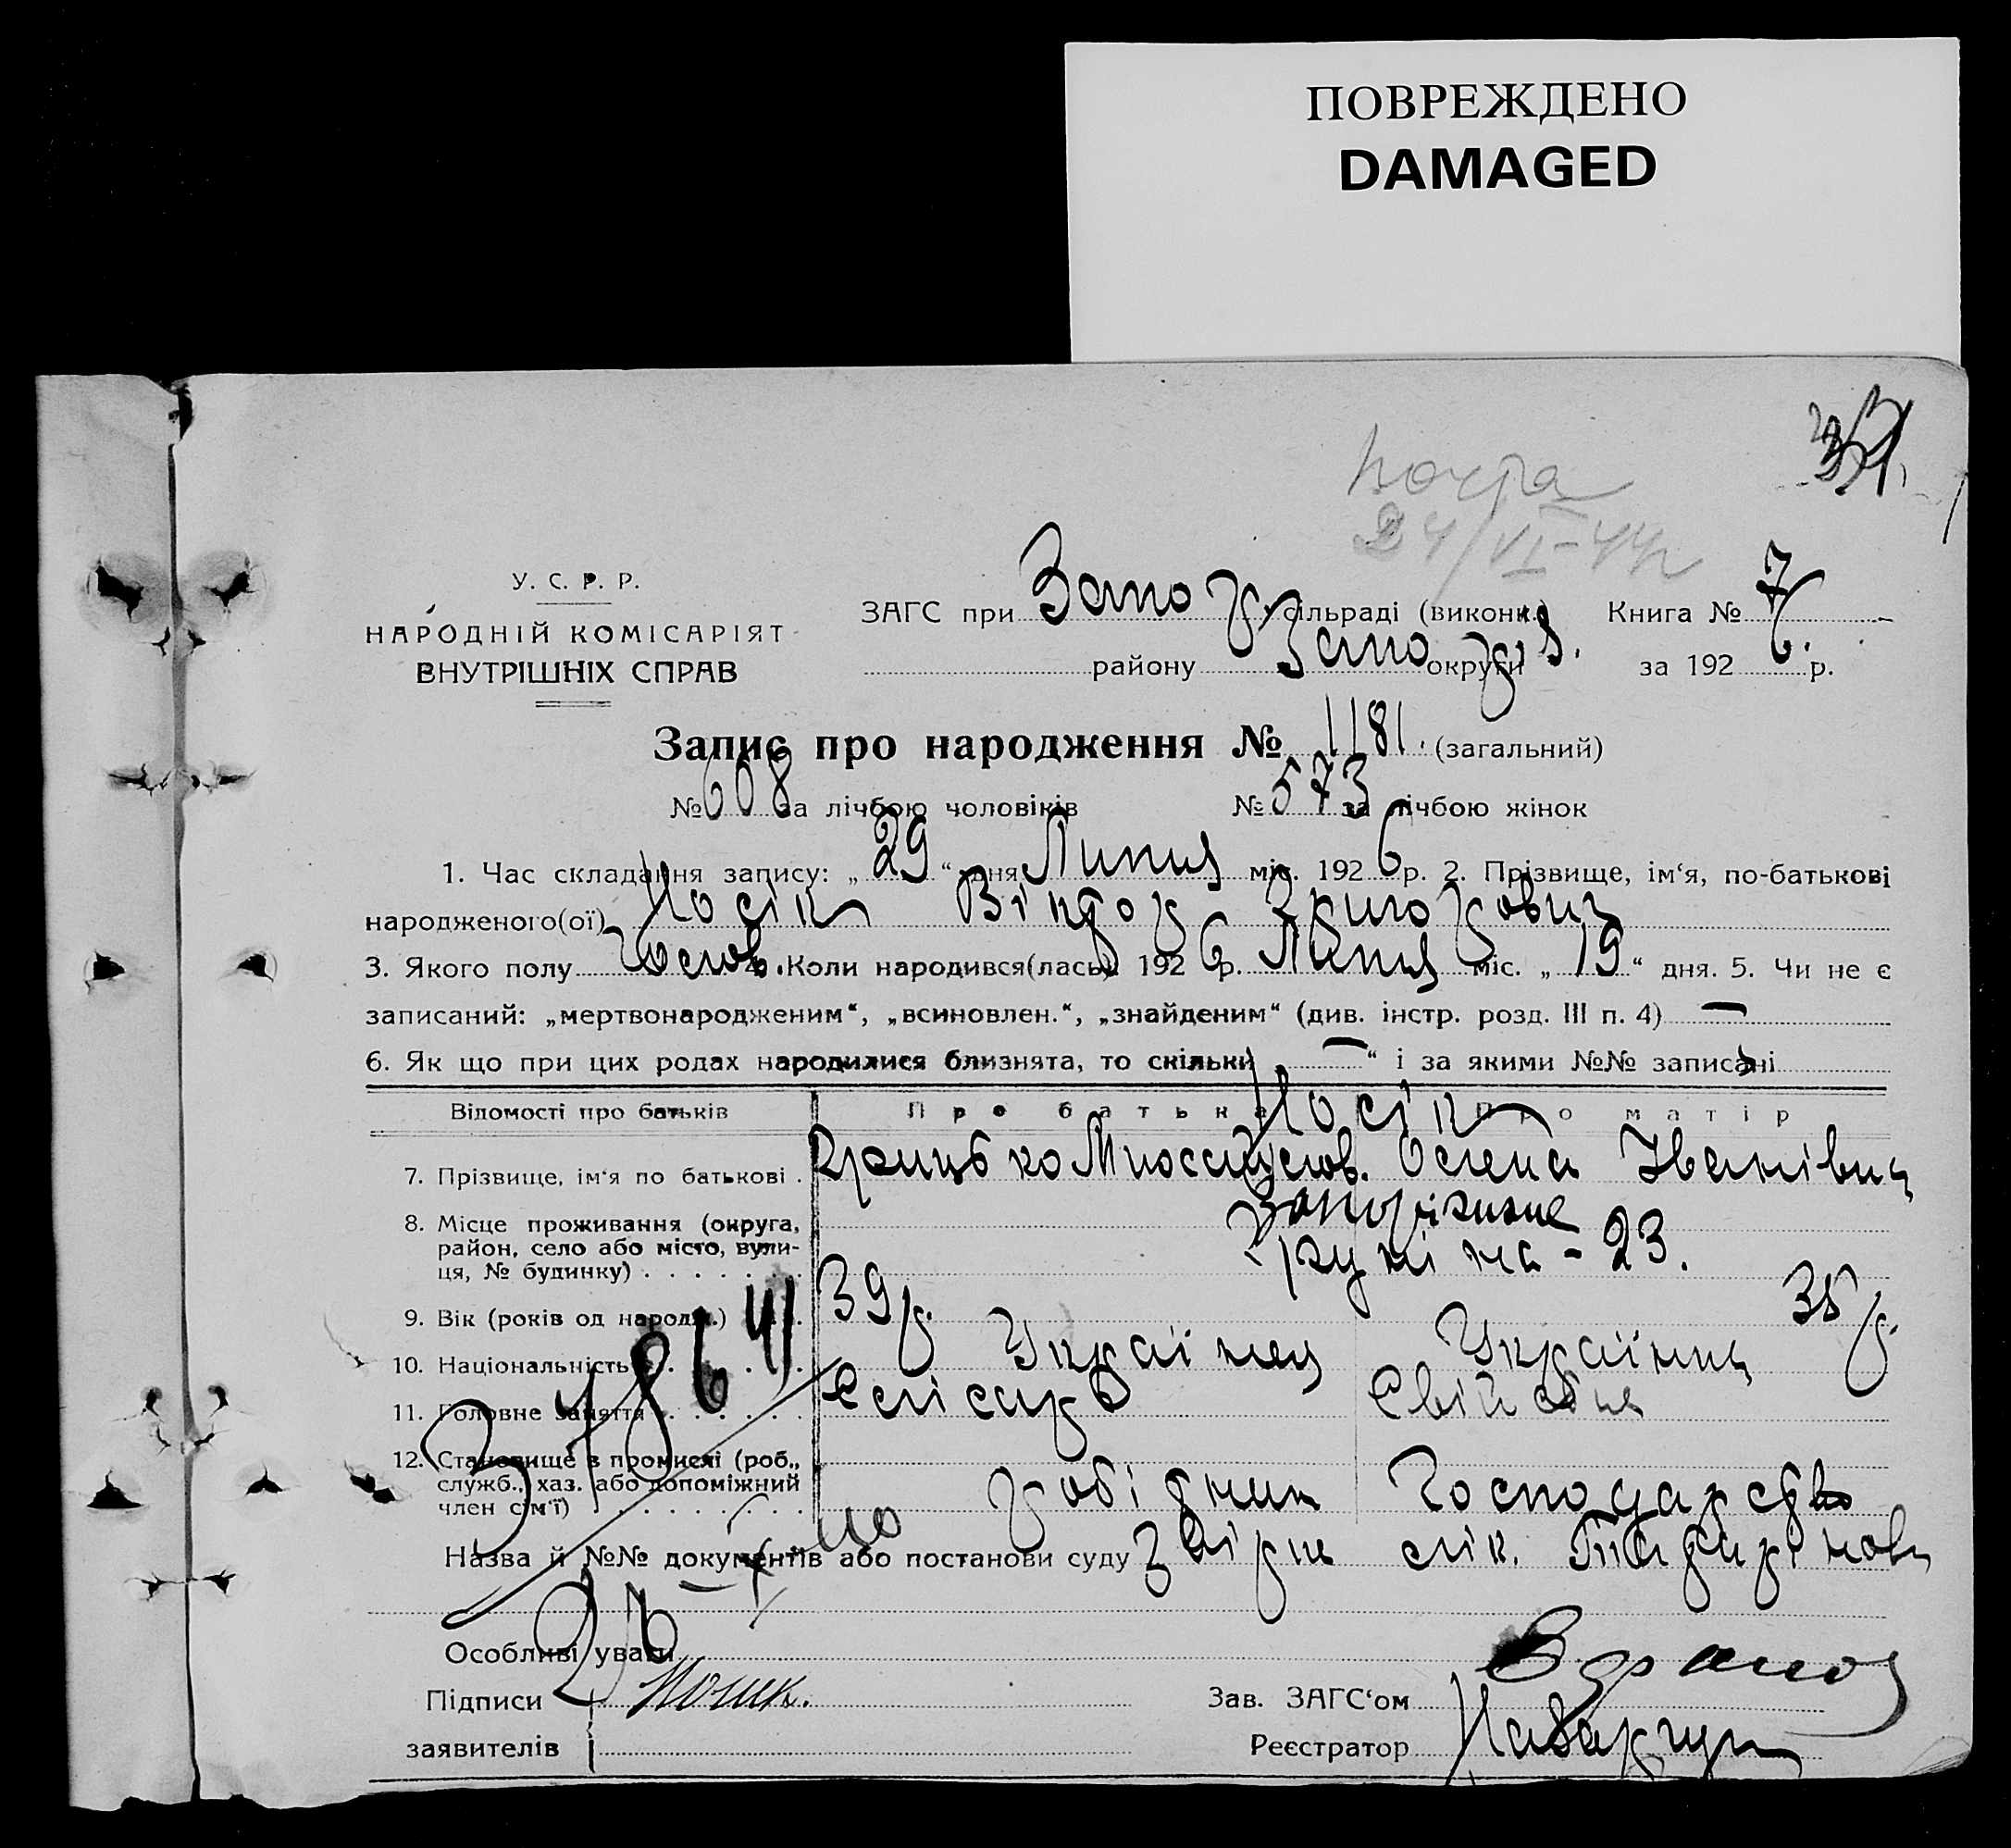 ПОВРЕЖДЕНО
DAMAGED
почта
24/VI-44
У. С. Р. Р.
НАРОДНІЙ КОМІСАРІЯТ
ВНУТРІШНІХ СПРАВ
ЗАГС при Запор. сільраді (виконк.) Книга № 7
району Запор. округи за 1926 р.
Запис про народження № 1181. (загальний)
№ 608 за лічбою чоловіків № 573 за лічбою жінок
1. Час складання запису: „29“ дня Липця міс. 1926 р. 2. Прізвище, ім‘я, по-батькові
народженого(ої) Носік Віктор Григорович
3. Якого полу Чолов. 4. Коли народився(лась) 1926 р. Липця міс. „19“ дня. 5. Чи не є
записаний: „мертвонародженим“, „всиновлен.“, „знайденим“ (див. інстр. розд. III п. 4) —
6. Як що при цих родах народилися близнята, то скільки „—“ і за якими №№ записані
Відомості про батьків Про батька Про матір
Носік
7. Прізвище, ім‘я по батькові . Грицько Олена Іванівна
8. Місце проживання (округа, район, село або місто, вулиця, № будинку) . . . . . . . Запоріжжя
- 23.
9. Вік (років од народж.) 39 р. 35 р.
10. Національність . . . . . Українец Українка
11. Головне заняття . . . . . . Слісарь Свійське
12. Становище в промислі (роб., служб., хаз. або допоміжний член сім‘ї) . . . . . . . . . робітник Господарство
37864
Назва й №№ документів або постанови суду
Особливі уваги
Підписи Носик. Зав. ЗАГС‘ом
заявителів Реєстратор